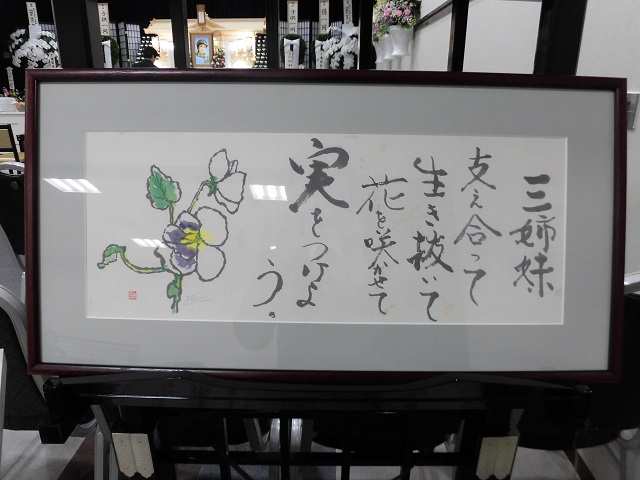 三姉妹
支え合って
生き抜いて
花を咲かせて
実をつけよ
う。